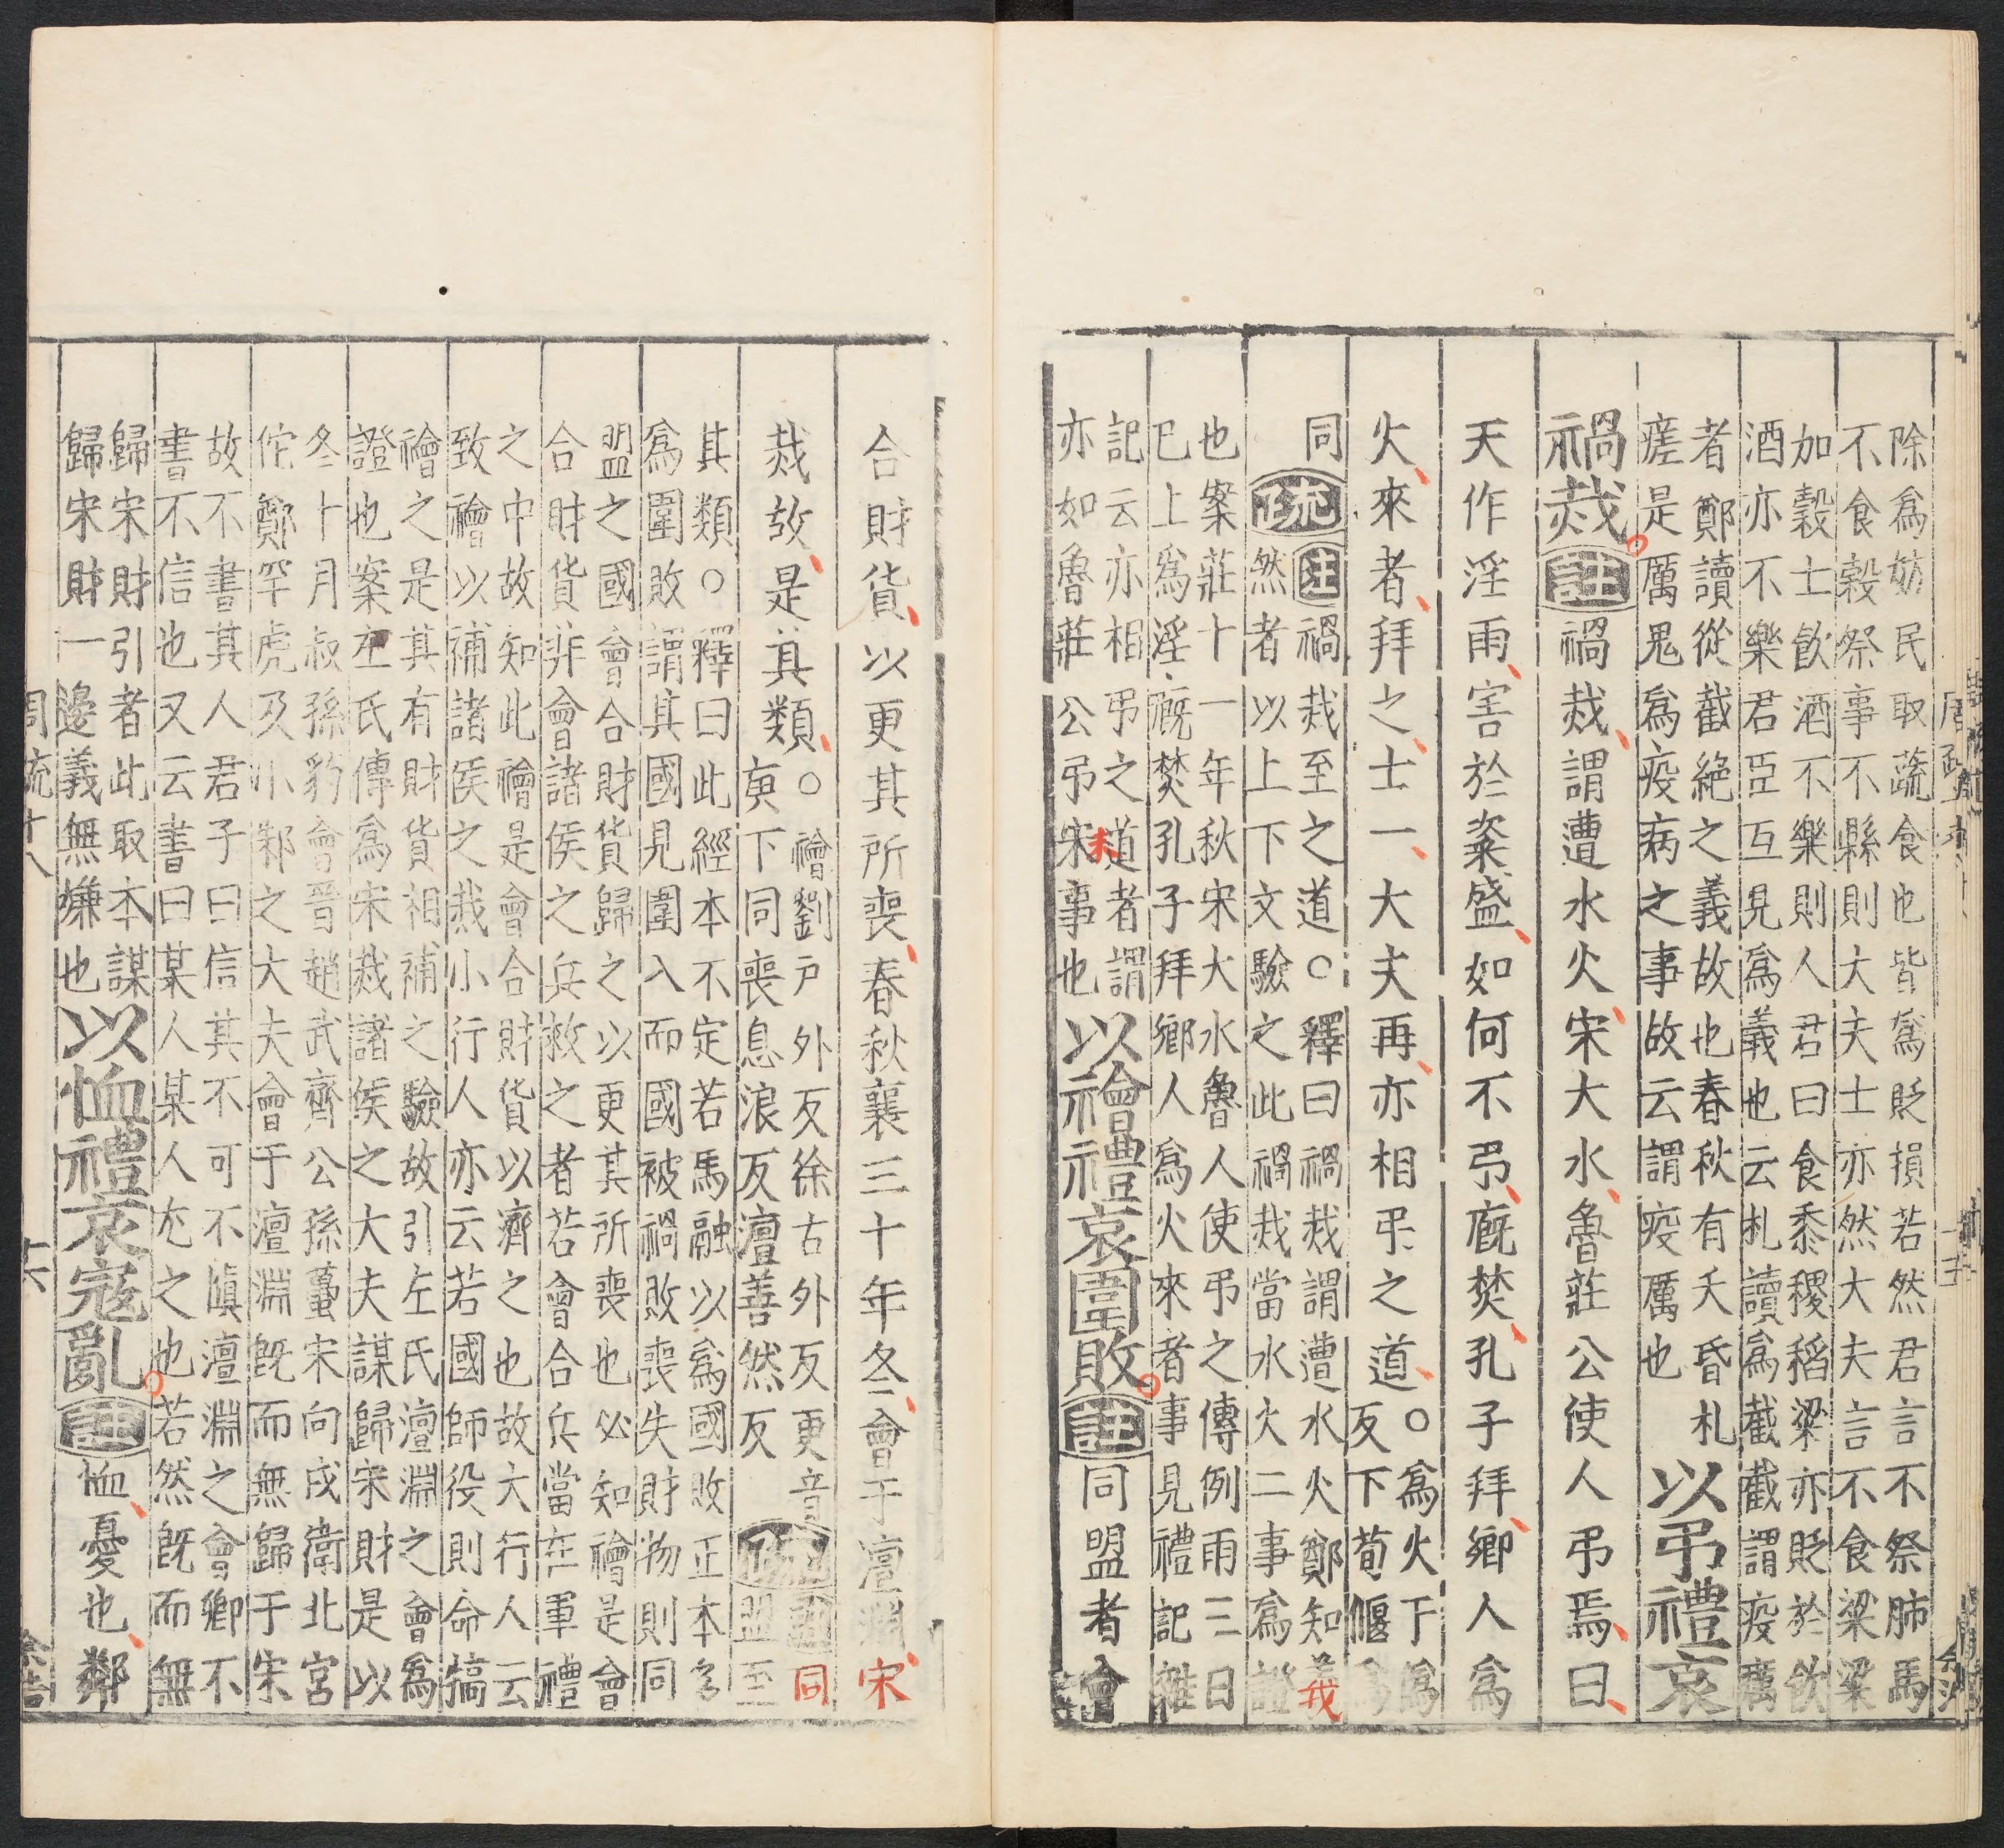 除爲妨民取蔬食也皆爲貶損若然君言不祭肺馬
不食穀祭事不縣則大夫士亦然大夫言不食粱粱
加穀士飲酒不樂則人君曰食黍稷稻粱亦貶於飲
酒亦不樂君臣互見爲義也云札讀爲截截謂疫癘
者鄭讀從截絕之義故也春秋有夭昏札
瘥是厲鬼爲疫病之事故云謂疫厲也
以弔禮哀
禍烖註禍烖謂遭水火宋大水魯莊公使人弔焉曰
天作淫雨害於粢盛如何不弔廐焚孔子拜鄉人爲
火來者拜之士一大夫再亦相弔之道○
爲火下爲
反下荀偃爲
同疏註禍烖至之道○釋曰禍烖謂遭水火鄭知義
然者以上下文驗之此禍烖當水火二事爲證
也案莊十一年秋宋大水魯人使弔之傳例雨三日
巳上爲淫廐焚孔子拜鄉人爲火來者事見禮記雜
記云亦相弔之道者謂
亦如魯莊公弔宋事也
以禬禮哀圍敗註同盟者會
合財貨以更其所喪春秋襄三十年冬會于澶淵宋
烖故是其類○
禬劉戶外反徐古外反更音
庚下同喪息浪反澶善然反
疏註同
盟至
其類○釋曰此經本不定若馬融以爲國敗正本多
爲圍敗謂其國見圍入而國被禍敗喪失財物則同
盟之國會合財貨歸之以更其所喪也必知禬是會
合財貨非會諸侯之兵救之者若會合兵當在軍禮
之中故知此禬是會合財貨以濟之也故大行人云
致禬以補諸侯之烖小行人亦云若國師役則命犒
禬之是其有財貨相補之驗故引左氏澶淵之會爲
證也案左氏傳爲宋烖諸侯之大夫謀歸宋財是以
冬十月叔孫豹會晉趙武齊公孫蠆宋向戌衛北宮
佗鄭罕虎及小邾之大夫會于澶淵既而無歸于宋
故不書其人君子曰信其不可不愼澶淵之會卿不
書不信也又云書曰某人某人尢之也若然既而無
歸宋財引者此取本謀
歸宋財一邊義無嫌也
以恤禮哀寇亂註恤憂也鄰
周疏十八
十六